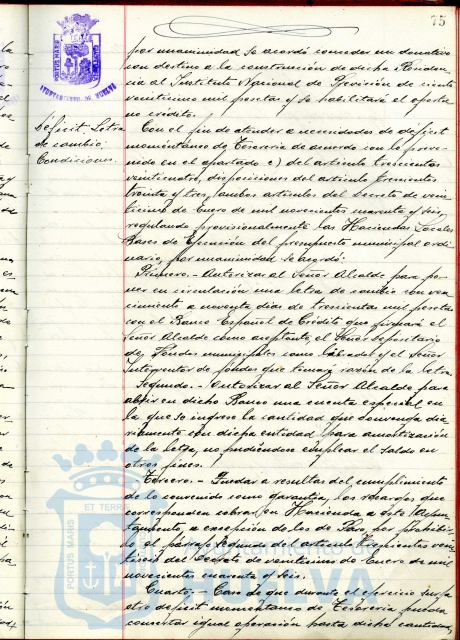 75
por unanimidad se acordó conceder un donativo
con destino a la construcción de dicha Residen-
cia al Instituto Nacional de Previsión de ciento
veinticinco mil pesetas y se habilitará el oportu-
no crédito.
Déficit. Letra
de cambio.
Condiciones.
Con el fin de atender a necesidades de déficit
momentáneo de Tesorería de acuerdo con lo preve-
nido en el apartado c) del artículo trescientos
veinticuatro, disposiciones del artículo trescientos
treinta y tres, ambos artículos del Decreto de vein-
ticinco de Enero de mil novecientos cuarenta y seis,
regulando provisionalmente las Haciendas Locales
Bases de Ejecución del presupuesto municipal ordi-
nario, por unanimidad se acordó:
Primero.- Autorizar al Señor Alcalde para po-
ner en circulación una letra de cambio con ven-
cimiento a noventa días de trescientas mil pesetas
con el Banco Español de Crédito que firmará el
Señor Alcalde como aceptante, el Señor Depositario
de Fondos municipales como librador y el Señor
Interventor de fondos que tomará razón de la letra.
Segundo.- Autorizar al Señor Alcalde para
abrir en dicho Banco una cuenta especial en
la que se ingrese la cantidad que convenga dia-
riamente con dicha entidad para amortización
de la letra, no pudiéndose emplear el saldo en
otros fines.
Tercero.- Quedar a resultas del cumplimiento
de lo convenido como garantía, los recargos que
corresponden cobrar en Hacienda a este Ayun-
tamiento, a excepción de los de Paro, por prohibir-
lo el párrafo segundo del artículo trescientos vein-
del Decreto de veinticinco de Enero de mil
novecientos cuarenta y seis.
Cuarto.- Caso de que durante el ejercicio surja
otro déficit momentáneo de Tesorería pueda
concertar igual operación hasta dicha cantidad,
PORTUS MARIS
AYUNTAMIENTO DE HUELVA
PORTUS MARIS ET TERR
Ayuntamiento de
HUELVA